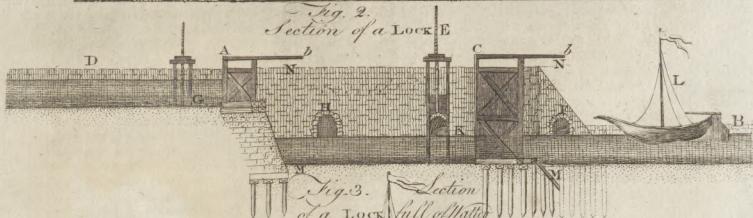 Fig. 2.
Section of a LOCK E
A C
b b
D N N L
G H I B
K
M M
Fig. 3. Section
of a LOCK full of Water